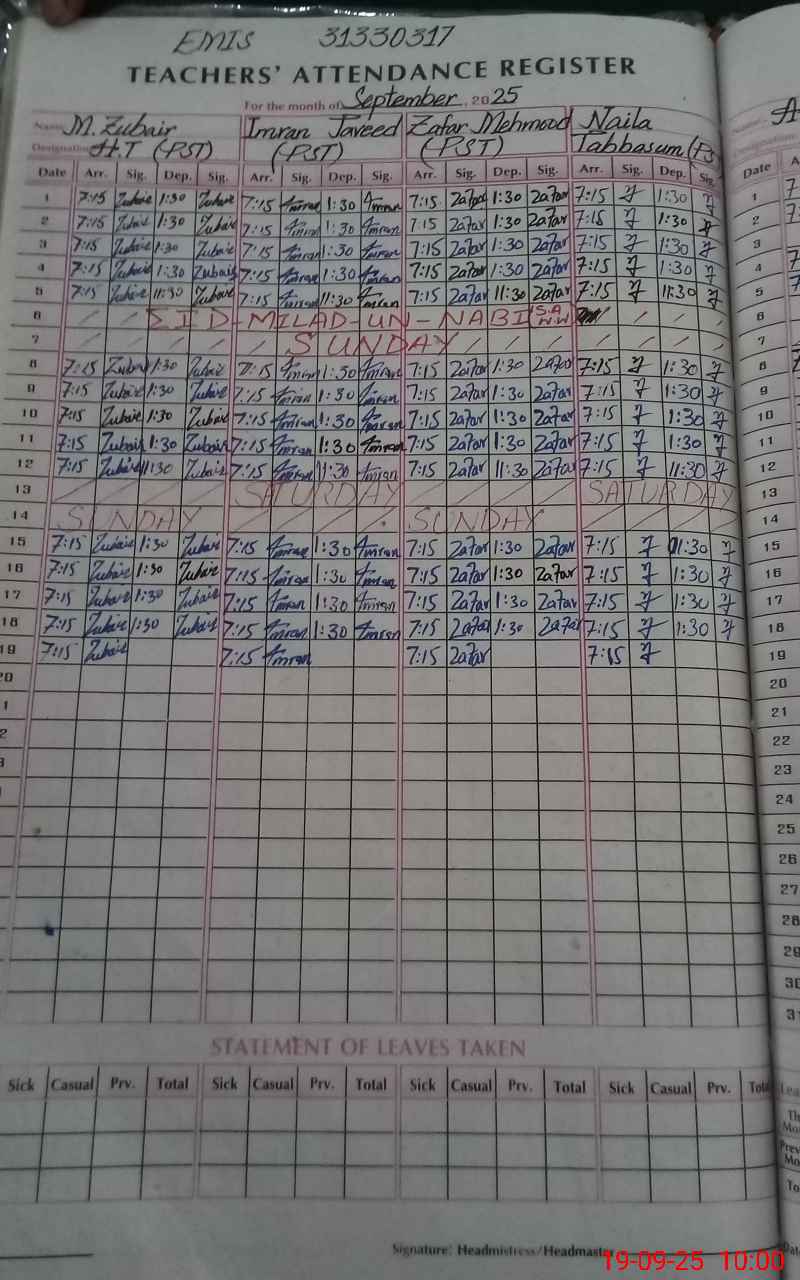 EMIS 31330317
TEACHERS' ATTENDANCE REGISTER
For the month of September, 2025
Name M. Zubair Imran Javeed Zafar Mehmood Naila
Designation H.T (PST) (PST) (PST) Tabbasum (PS
Date Arr. Sig. Dep. Sig. Arr. Sig. Dep. Sig. Arr. Sig. Dep. Sig. Arr. Sig. Dep. Sig. Date
1 7:15 Zubair 1:30 Zubair 7:15 Imran 1:30 Imran 7:15 Zafar 1:30 Zafar 7:15 1:30 1
2 7:15 Zubair 1:30 Zubair 7:15 Imran 1:30 Imran 7:15 Zafar 1:30 Zafar 7:15 1:30 2
3 7:15 Zubair 1:30 Zubair 7:15 Imran 1:30 Imran 7:15 Zafar 1:30 Zafar 7:15 1:30 3
4 7:15 Zubair 1:30 Zubair 7:15 Imran 1:30 Imran 7:15 Zafar 1:30 Zafar 7:15 1:30 4
5 7:15 Zubair 11:30 Zubair 7:15 Imran 11:30 Imran 7:15 Zafar 11:30 Zafar 7:15 11:30 5
6 EID-MILAD-UN-NABI S.A.W.W 6
7 SUNDAY 7
8 7:15 Zubair 1:30 Zubair 7:15 Imran 1:30 Imran 7:15 Zafar 1:30 Zafar 7:15 1:30 8
9 7:15 Zubair 1:30 Zubair 7:15 Imran 1:30 Imran 7:15 Zafar 1:30 Zafar 7:15 1:30 9
10 7:15 Zubair 1:30 Zubair 7:15 Imran 1:30 Imran 7:15 Zafar 1:30 Zafar 7:15 1:30 10
11 7:15 Zubair 1:30 Zubair 7:15 Imran 1:30 Imran 7:15 Zafar 1:30 Zafar 7:15 1:30 11
12 7:15 Zubair 11:30 Zubair 7:15 Imran 11:30 Imran 7:15 Zafar 11:30 Zafar 7:15 11:30 12
13 SATURDAY SATURDAY 13
14 SUNDAY SUNDAY 14
15 7:15 Zubair 1:30 Zubair 7:15 Imran 1:30 Imran 7:15 Zafar 1:30 Zafar 7:15 1:30 15
16 7:15 Zubair 1:30 Zubair 7:15 Imran 1:30 Imran 7:15 Zafar 1:30 Zafar 7:15 1:30 16
17 7:15 Zubair 1:30 Zubair 7:15 Imran 1:30 Imran 7:15 Zafar 1:30 Zafar 7:15 1:30 17
18 7:15 Zubair 1:30 Zubair 7:15 Imran 1:30 Imran 7:15 Zafar 1:30 Zafar 7:15 1:30 18
19 7:15 Zubair 7:15 Imran 7:15 Zafar 7:15 19
20 20
1 21
2 22
3 23
24
25
26
27
28
29
30
31
STATEMENT OF LEAVES TAKEN
Sick Casual Prv. Total Sick Casual Prv. Total Sick Casual Prv. Total Sick Casual Prv. Total
Signature: Headmistress/Headmaste
19-09-25 10:00